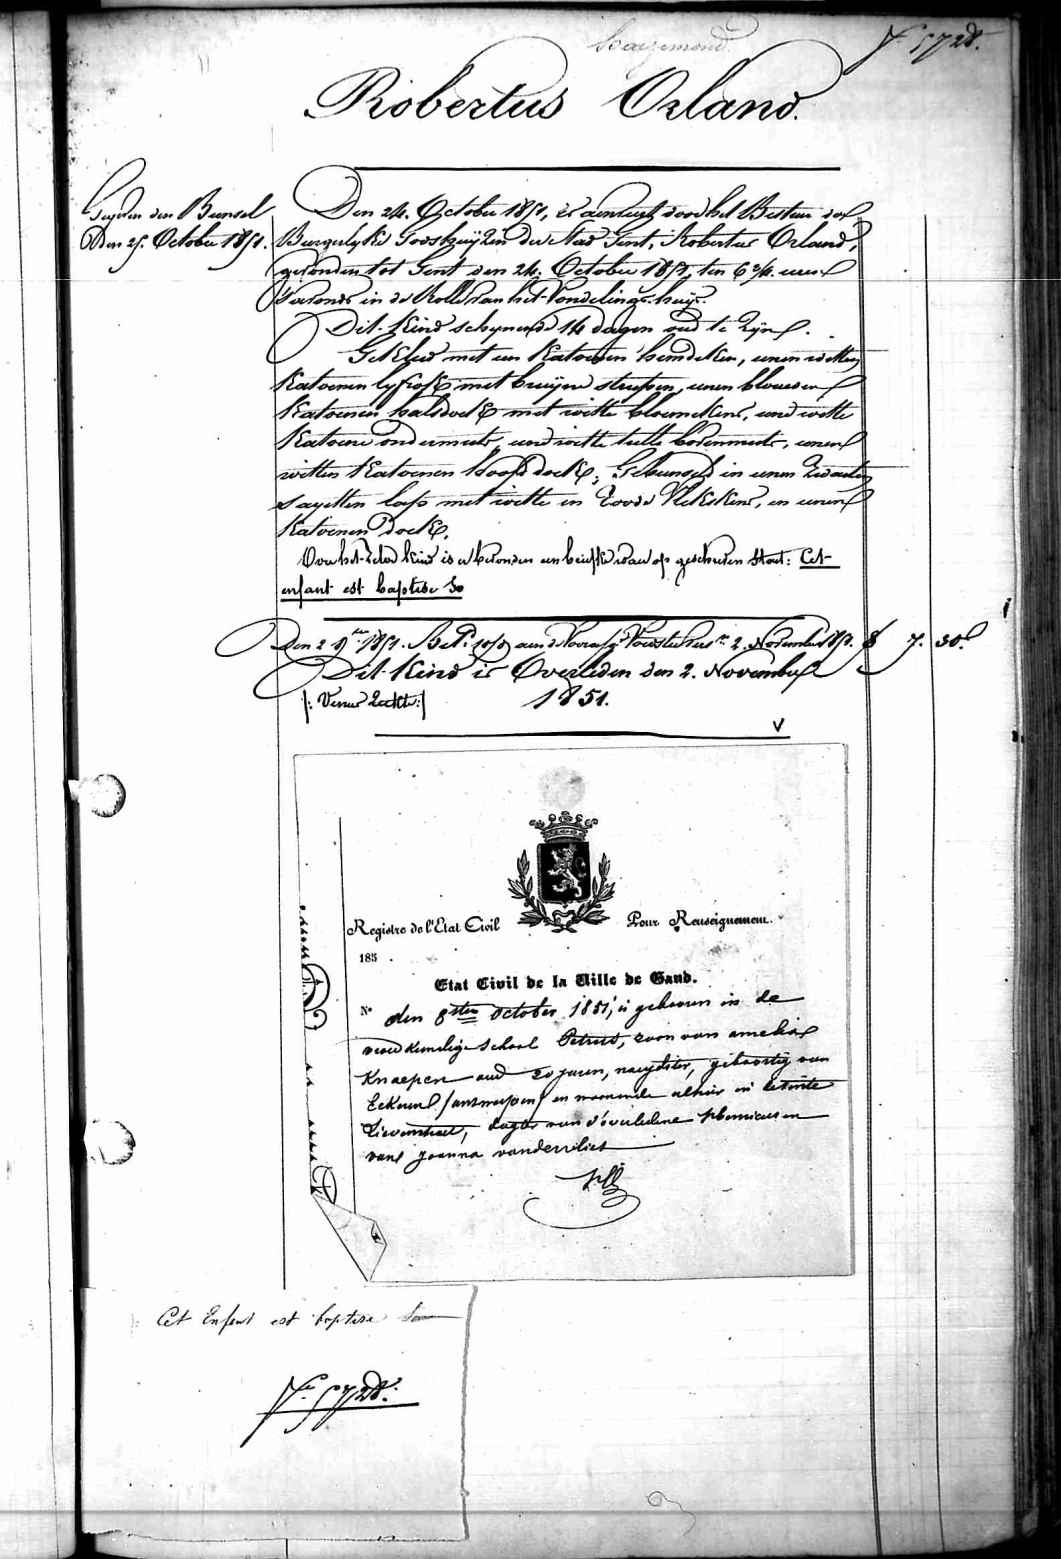 N° 5728.
Robertus Orland.
den Bunsel
Den 25. October 1851.
Den 24. October 1851, is aenveert door het Bestuer der
Burgerlyke Godshuyzen der Stad Gent, Robertus Orland,
gevonden tot Gent den 24. October 1851, ten 6 3/4 uren
's avonds in de Rolle van het Vondelingshuys.
Dit kind schynende 14 dagen oud te zyn.
Gekleed met een katoenen hemdeken, eenen witten
katoenen lyfrok met bruyne streepen, eenen blauwen
katoenen halsdoek met witte bloemekens, eene witte
katoene ondermuts, eene witte tulle bovenmuts, eenen
witten katoenen hoofddoek; Gebunseld in eenen zwarten
sayetten lap met witte en roode vlekskens, en eenen
katoenen doek.
Over het zelve kind is er bevonden een briefke waer op geschreven staet: Cet
enfant est baptise So
Den 29 1851. Bet. aen de Voedster 2. November 1851. 7. 30.
Dit kind is Overleden den 2. November
/: Venus Ziekte :/ 1851.
V
Registre de l'Etat Civil Pour Renseignement.
185 .
Etat Civil de la Ville de Gand.
N° den 8sten october 1851, is geboren in de
vroedkundige school Petrus, zoon van amelia
Knaepen oud 20 jaren, naeyster, geboortig van
Eckeren (antwerpen) en woonende alhier in de
Lievenstraet, dogter van d'overledene
van Joanna vandervliet
Cet Enfant est baptise
N° 5728.